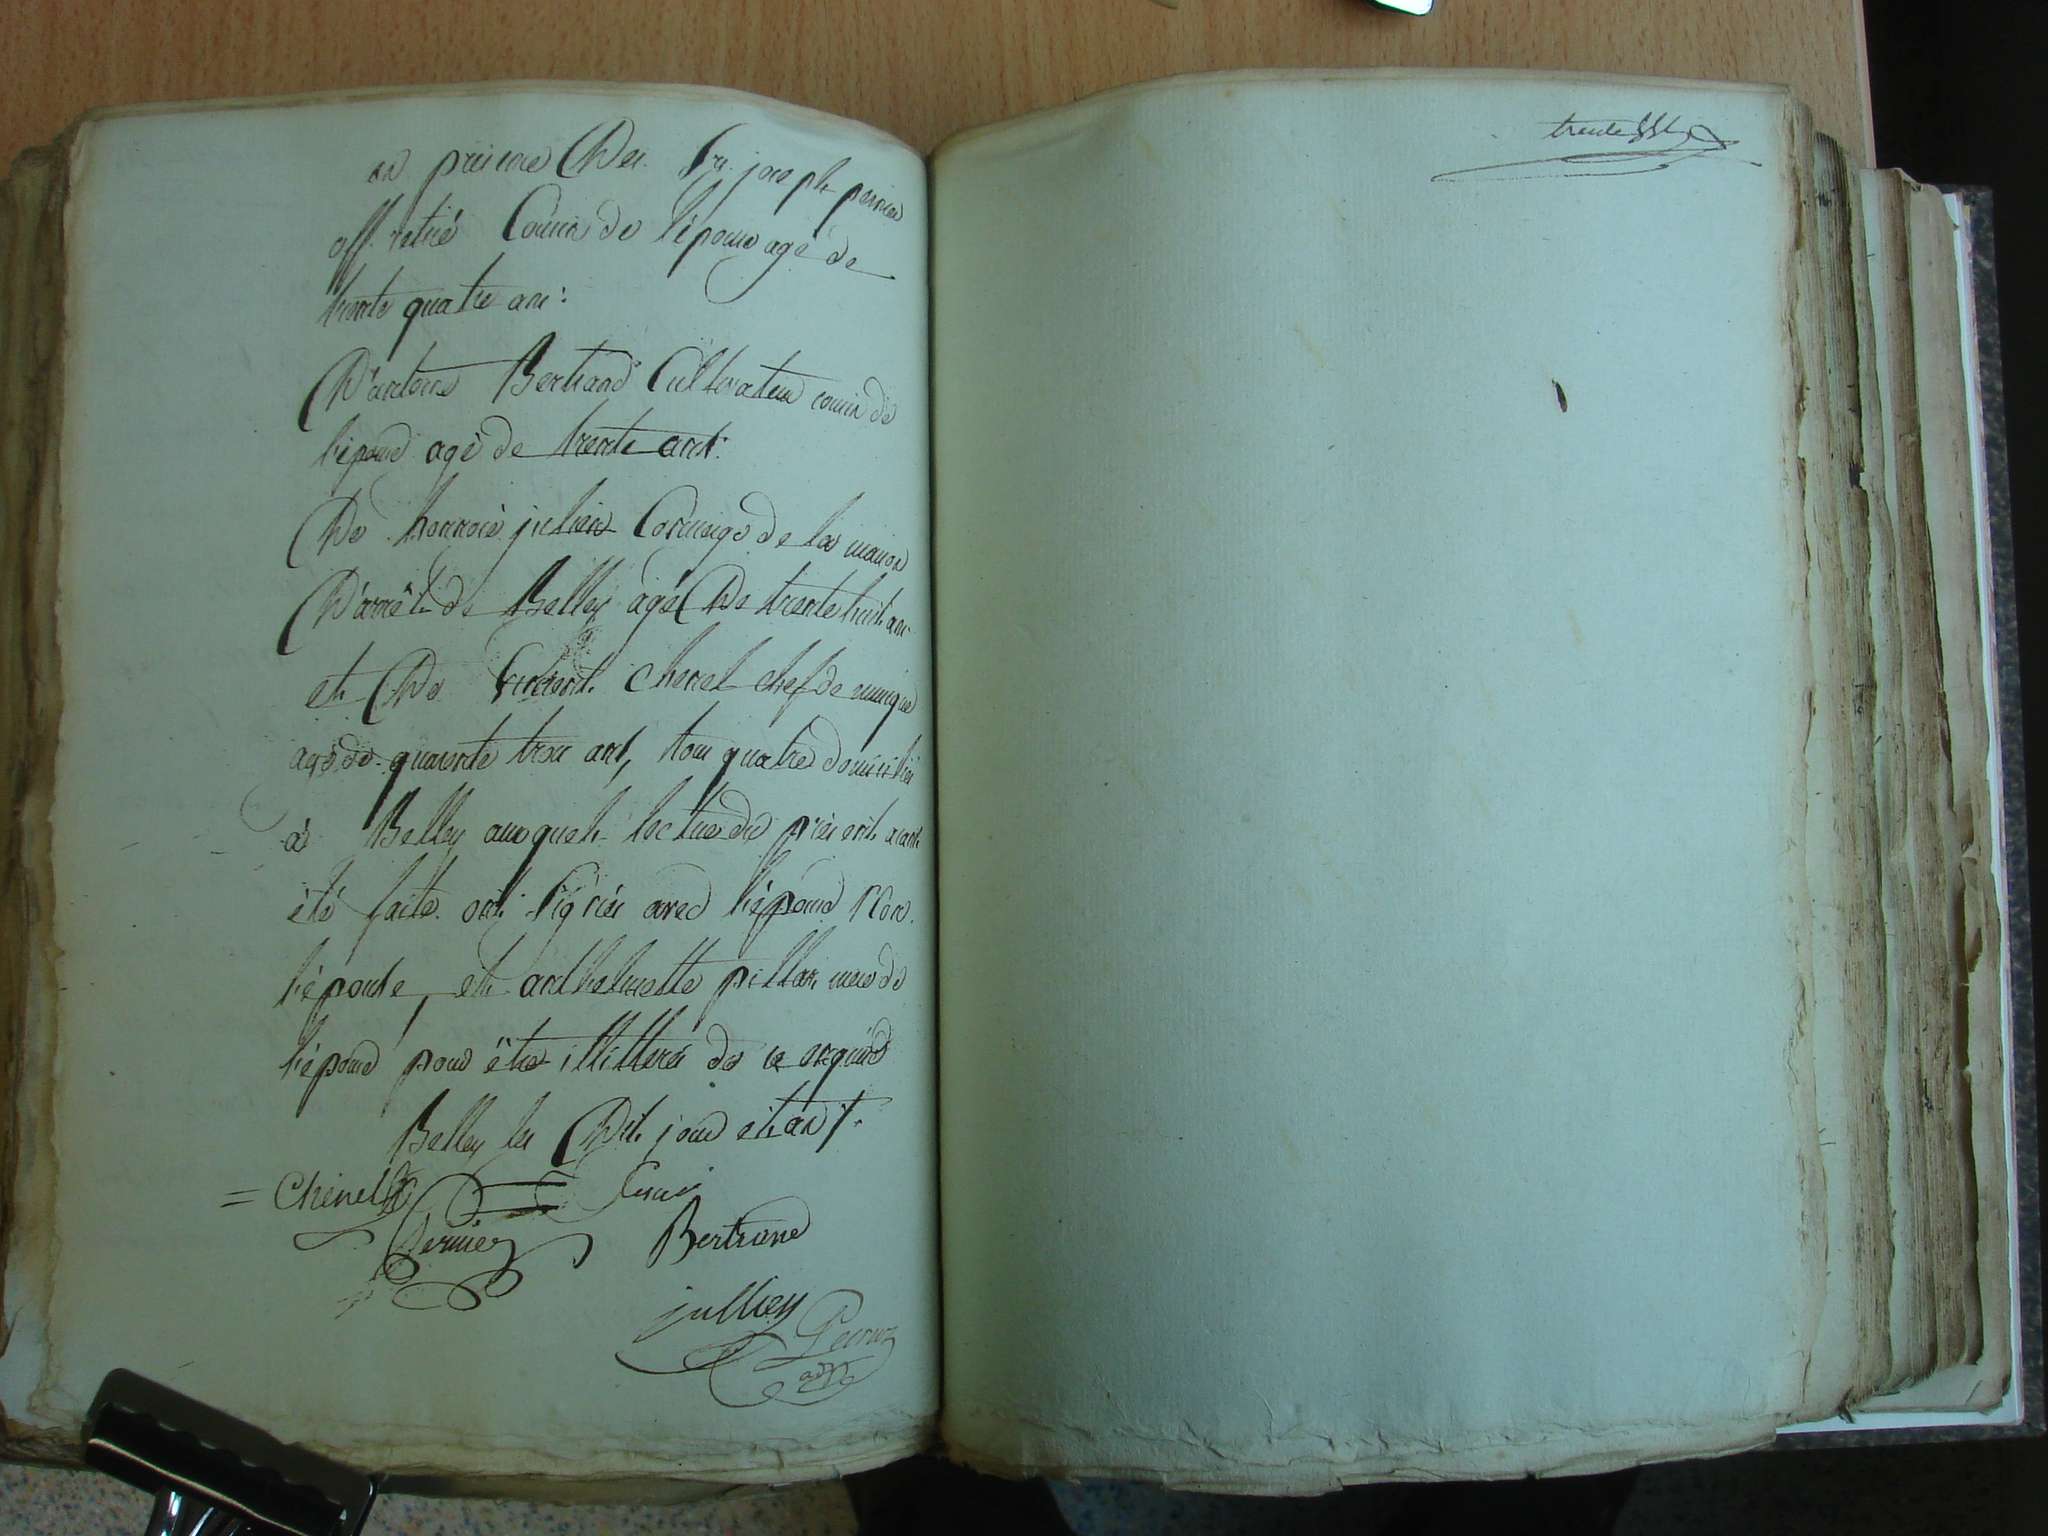 en présence De Sr. joseph perrier
off. retiré Cousin de l'époux agé de
trente quatre ans:
D'antoine Bertrand Cultivateur cousin de
l'époux agé de trente ans:
De honnoré julien Concierge de la maison
D'arrêt de Belley agé De trente huit ans
et De Vincent chenel chef de musique
agé de quarente trois ans, tous quatre domiciliés
à Belley auxquels lecture du présent aiant
été faite ont signés avec l'époux Non
l'épouse, et anthelmette pillar mere de
l'époux pour être illitterés de ce enquis
Belley les Dit jour et an
= Chenel
Perrier Bertrand
jullien
trente